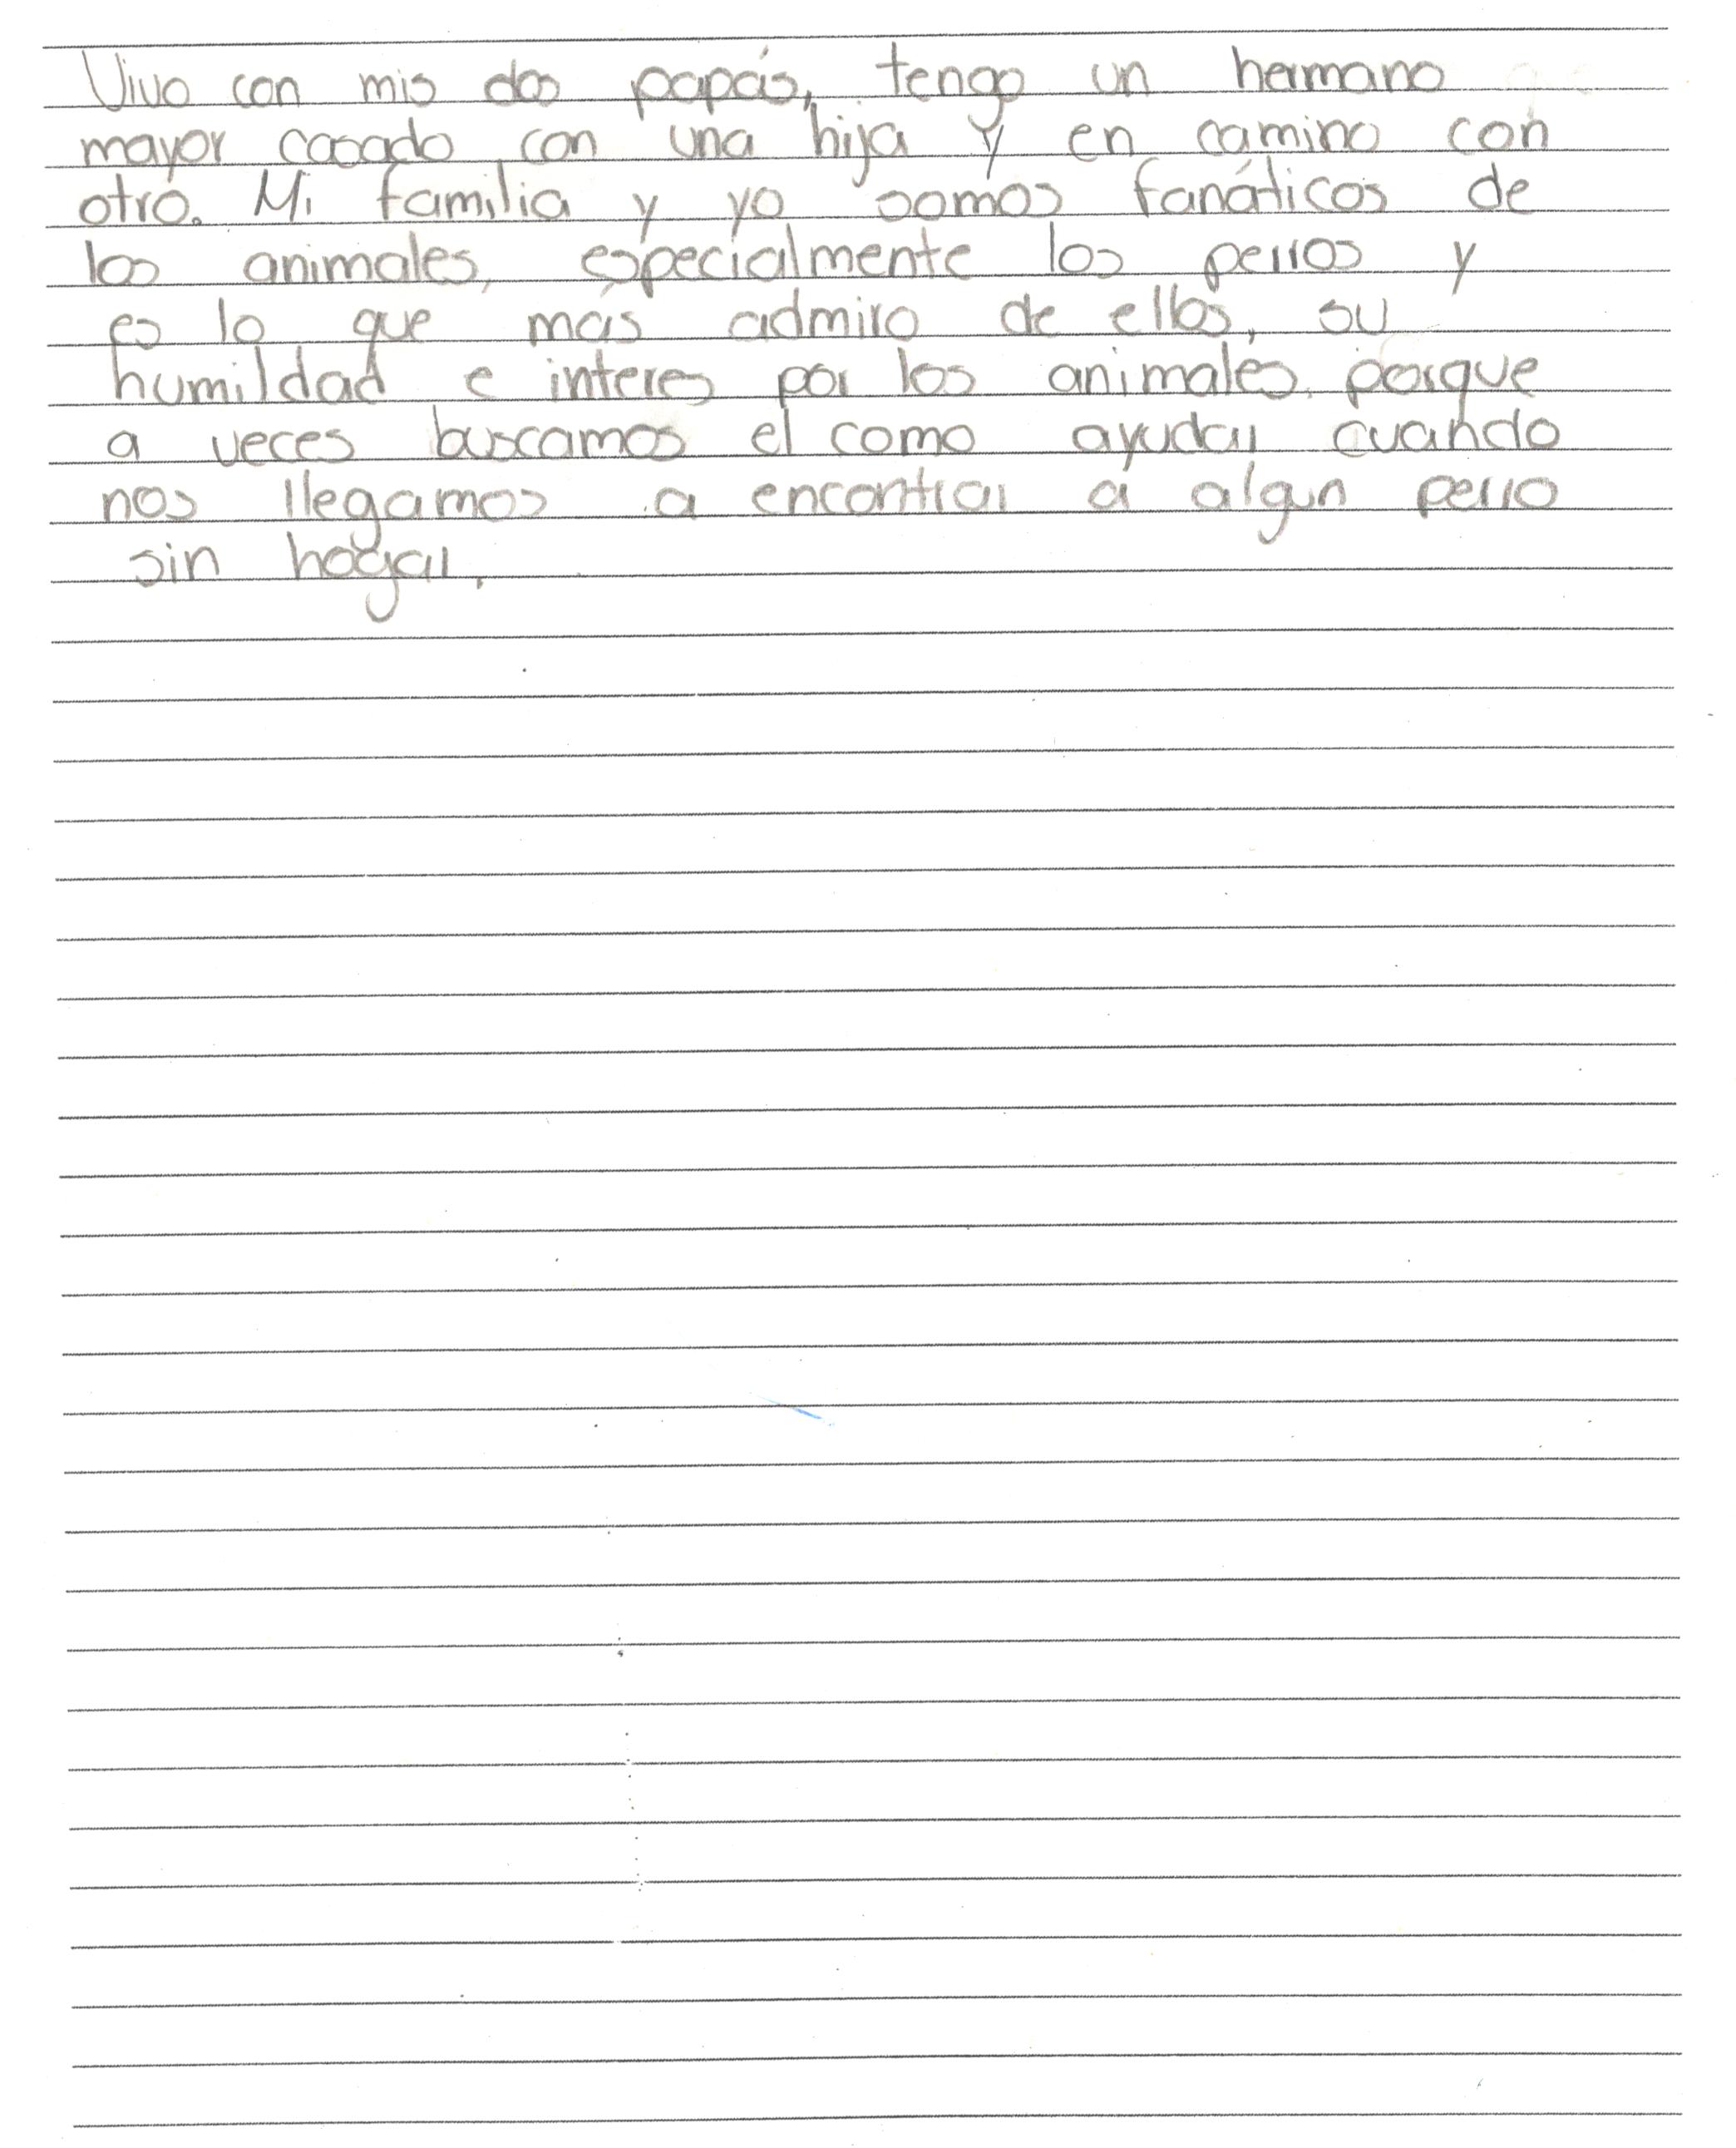 Vivo con mis dos papás, tengo un hermano
mayor casado con una hija y en camino con
otro. Mi familia y yo somos fanáticos de
los animales, especialmente los perros y
es lo que más admiro de ellos, su
humildad e interes por los animales porque
a veces buscamos el como ayudar cuando
nos llegamos a encontrar a algun perro
sin hogar.